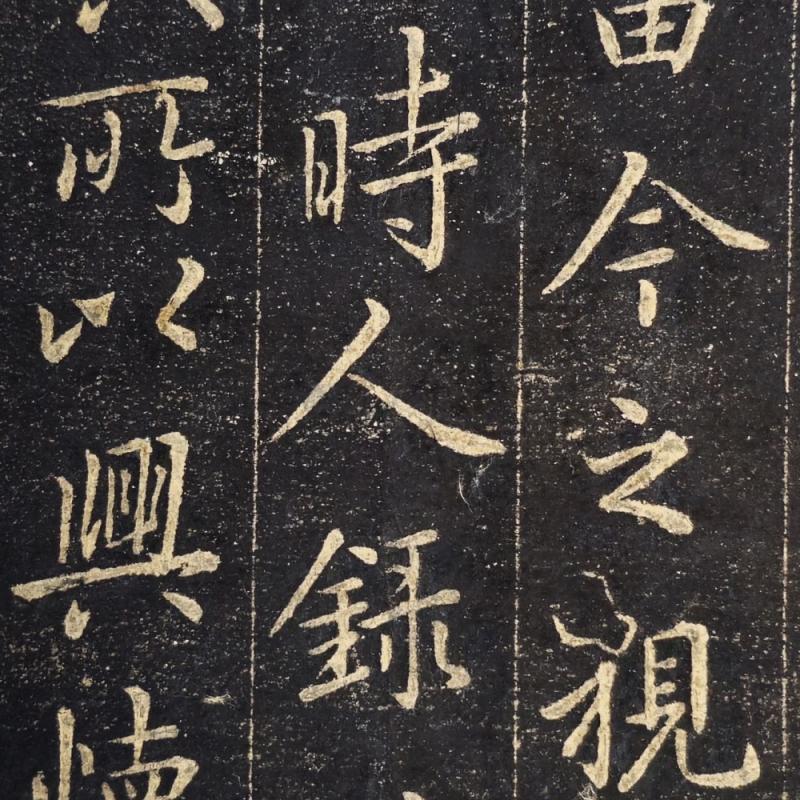 由今之視
時人錄
所以興懷